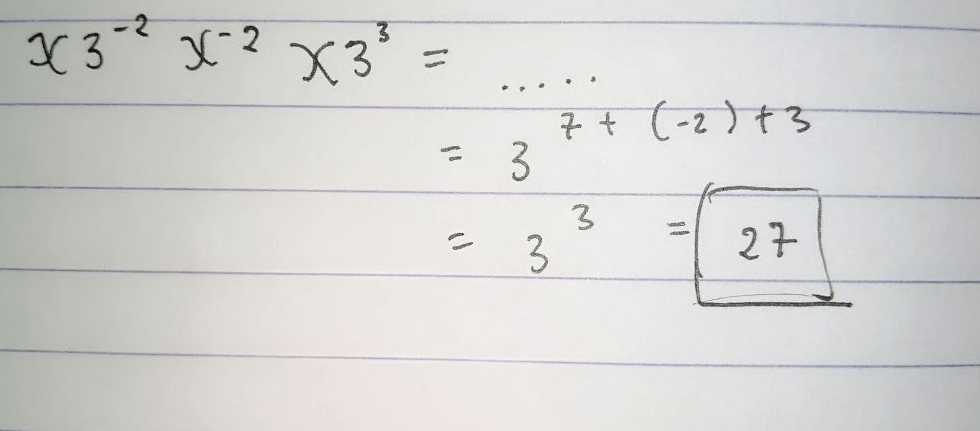 x 3⁻² x⁻² x 3³ = .....
= 3⁷ ⁺ ⁽⁻²⁾ ⁺ ³
= 3³ = 27